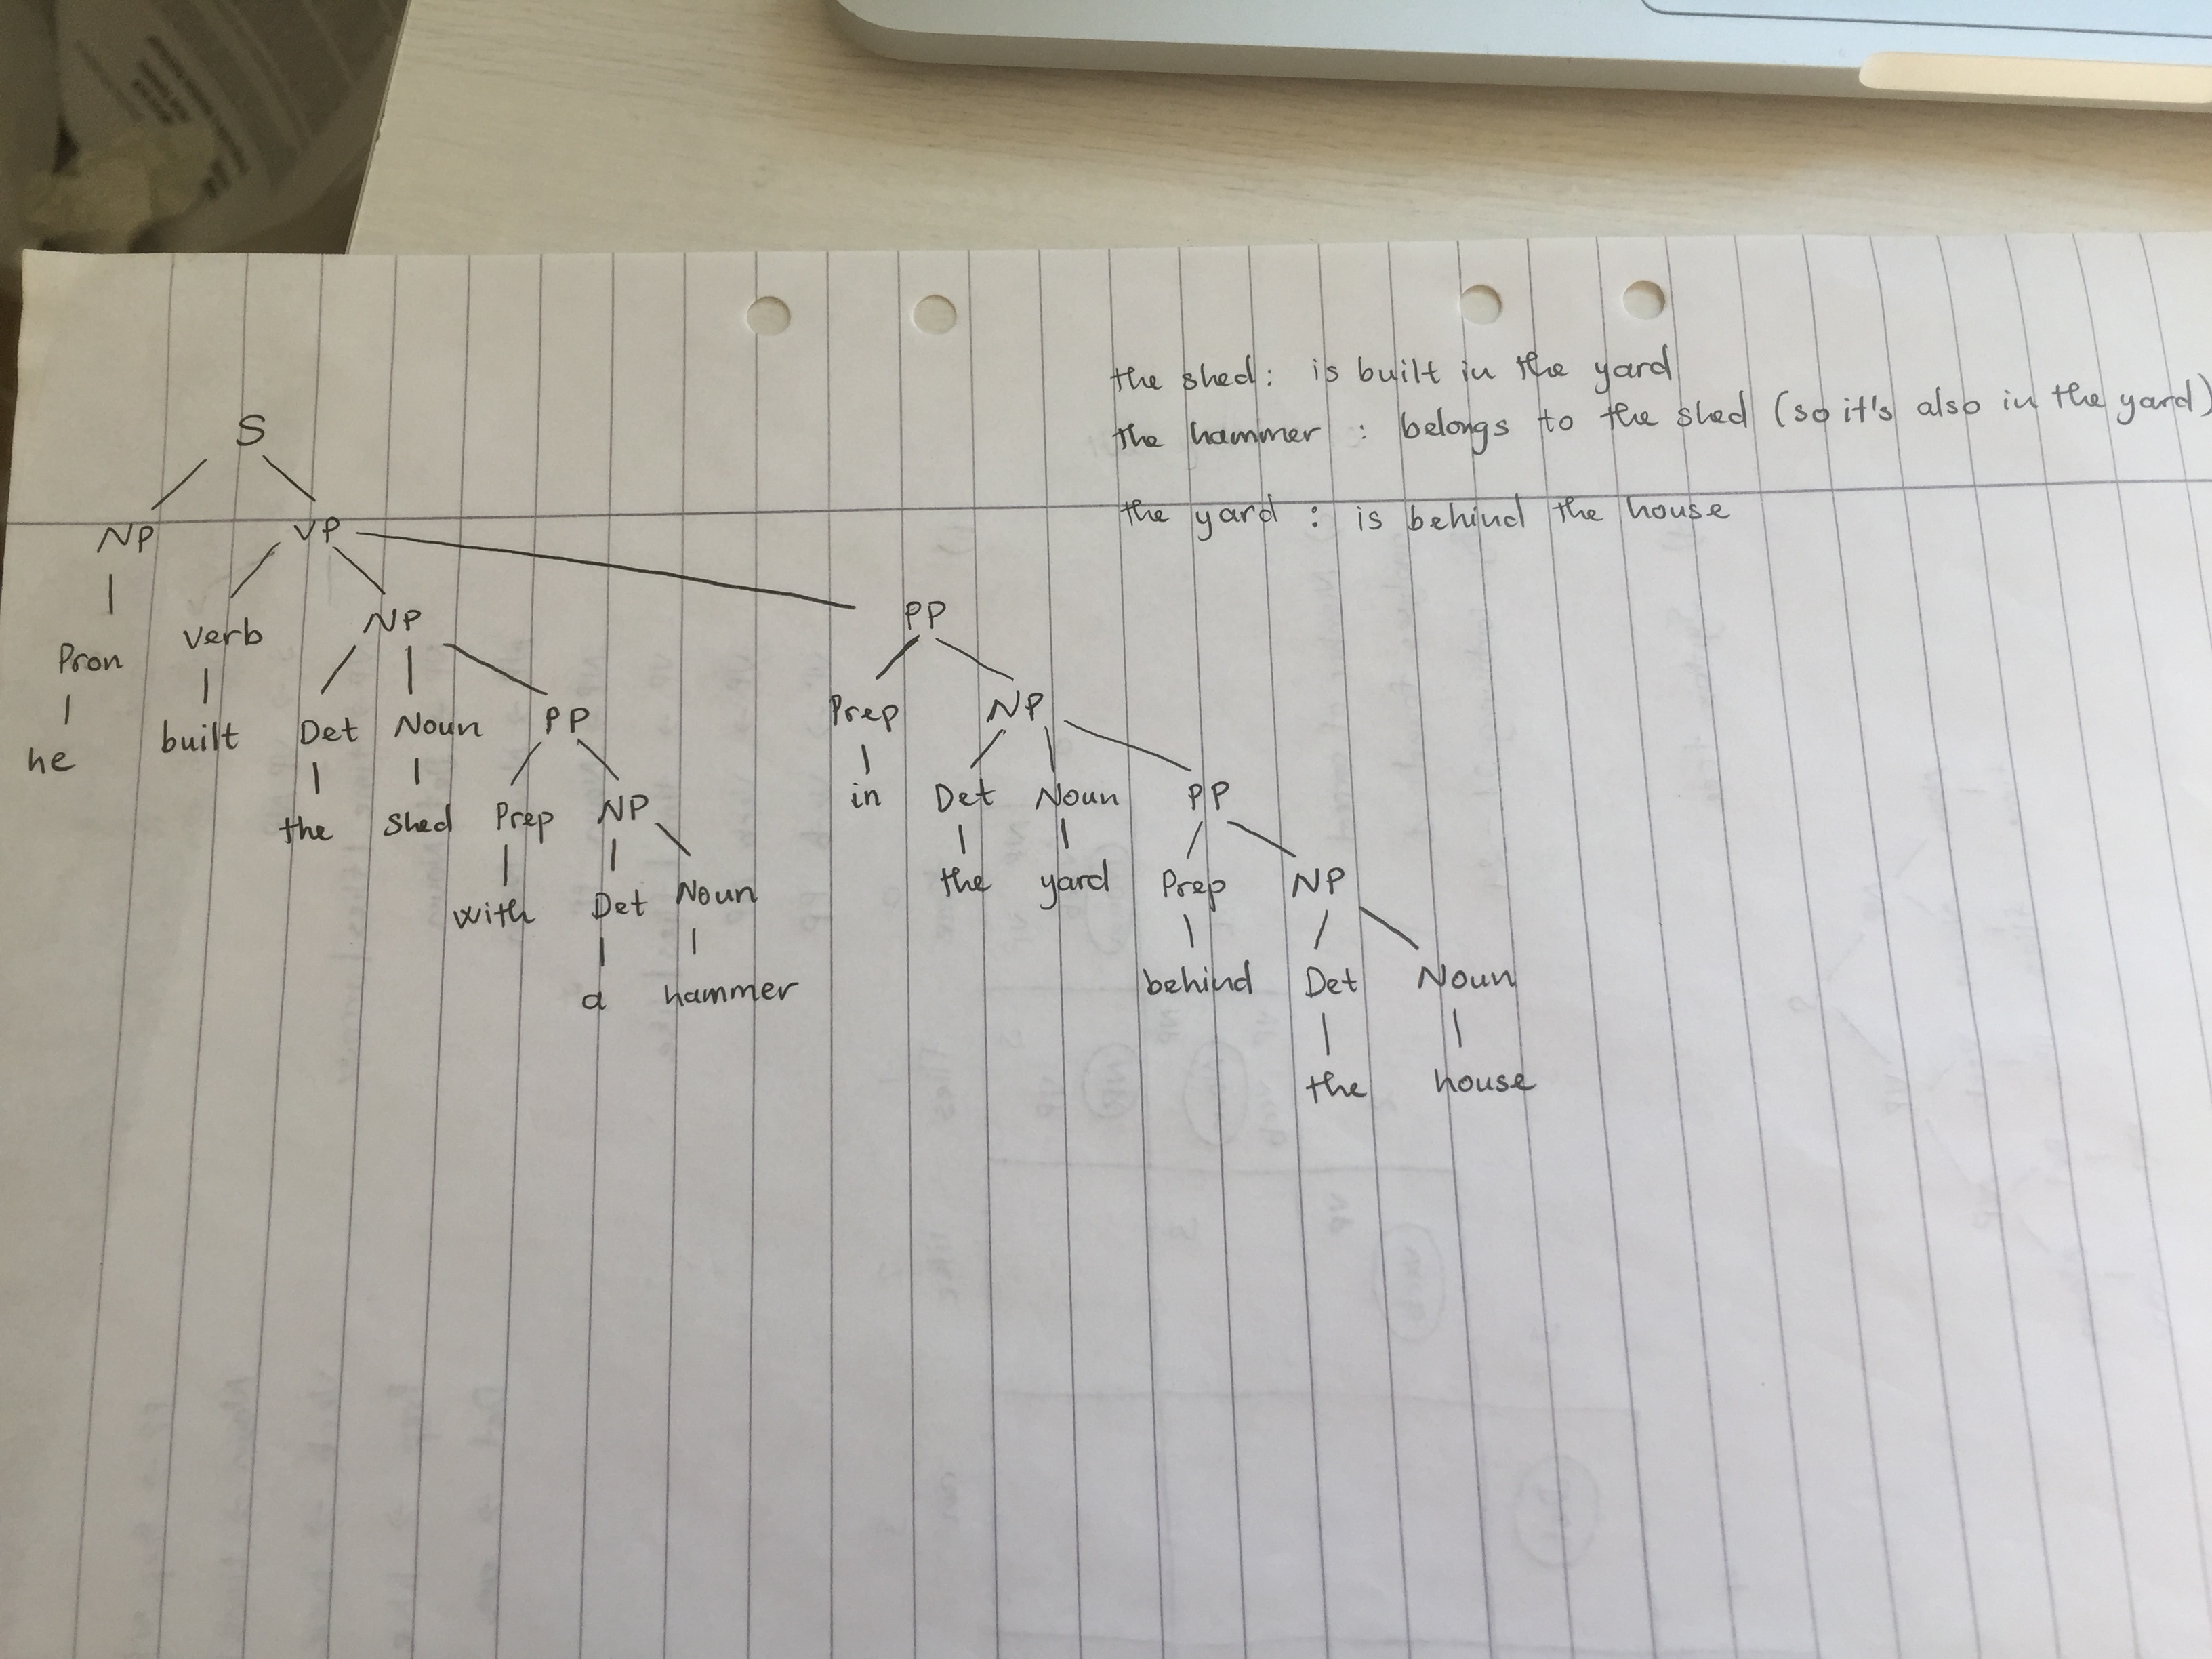 the shed: is built in the yard
the hammer: belongs to the shed (so it's also in the yard)
the yard: is behind the house
S
NP VP
Pron Verb NP PP
he built Det Noun PP Prep NP
the shed Prep NP in Det Noun PP
with Det Noun the yard Prep NP
a hammer behind Det Noun
the house